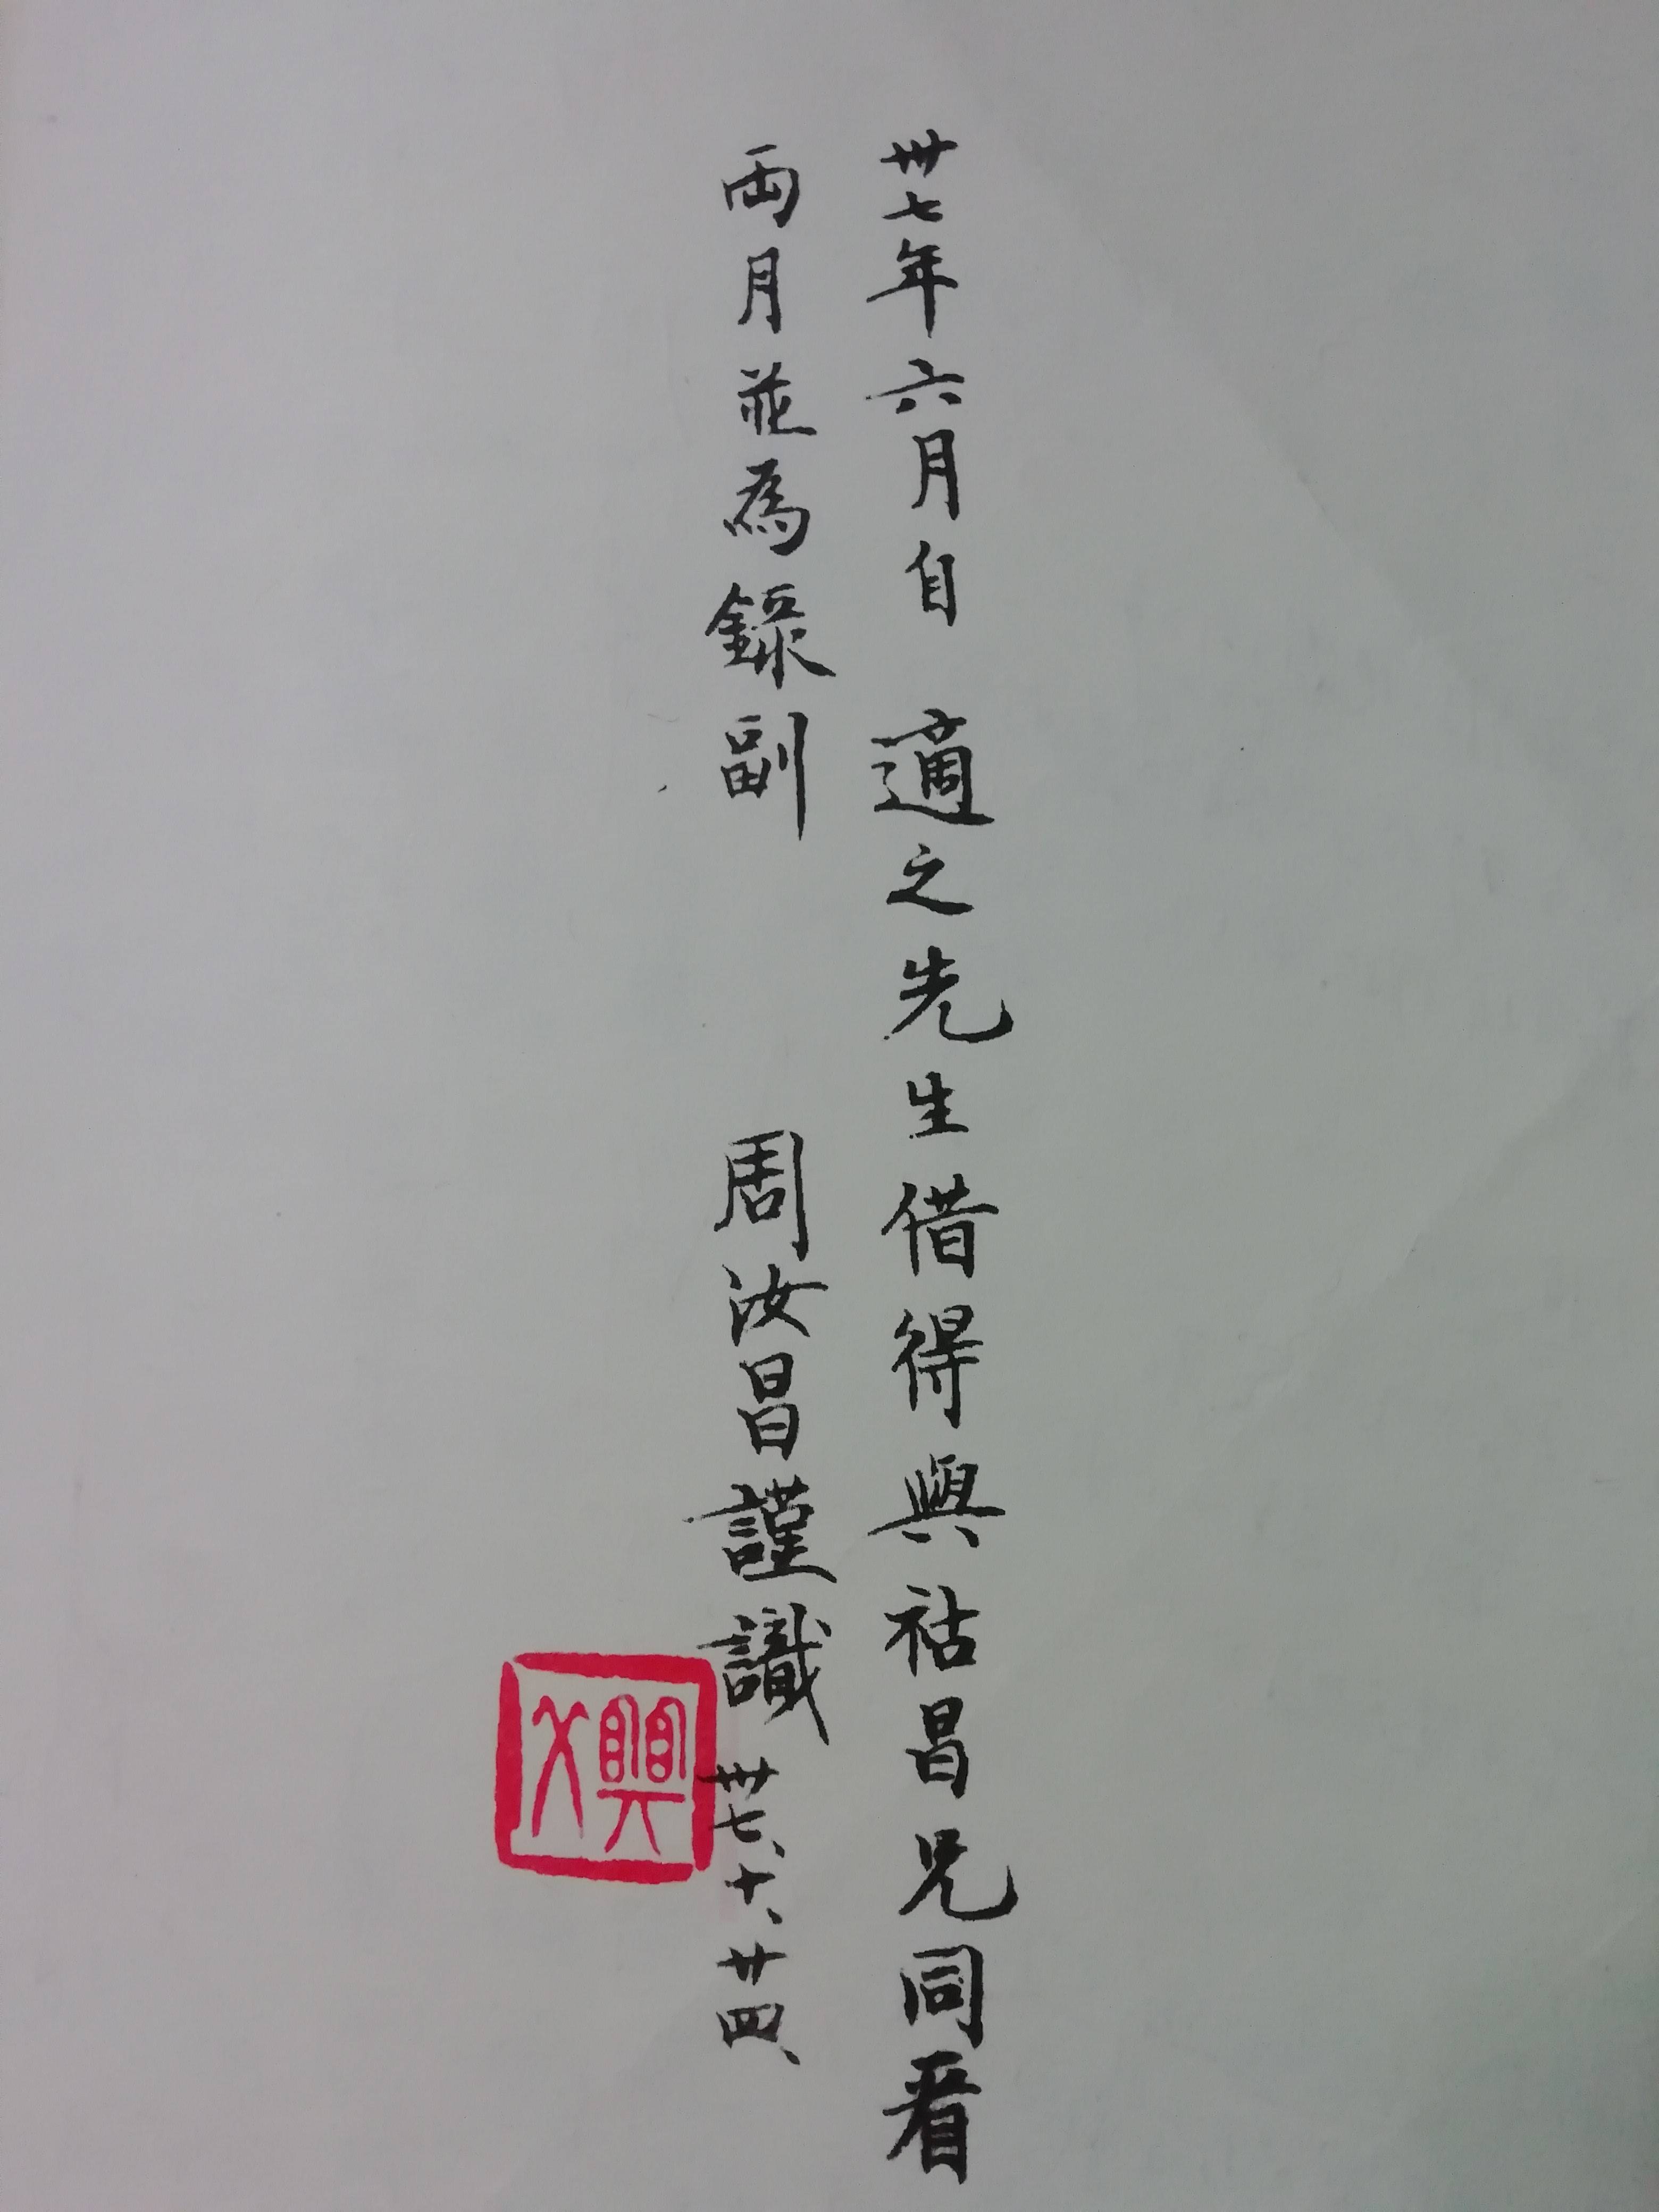 卅七年六月自 適之先生借得與祜昌兄同看
兩月並為錄副 周汝昌謹識 卅七、十、廿四、